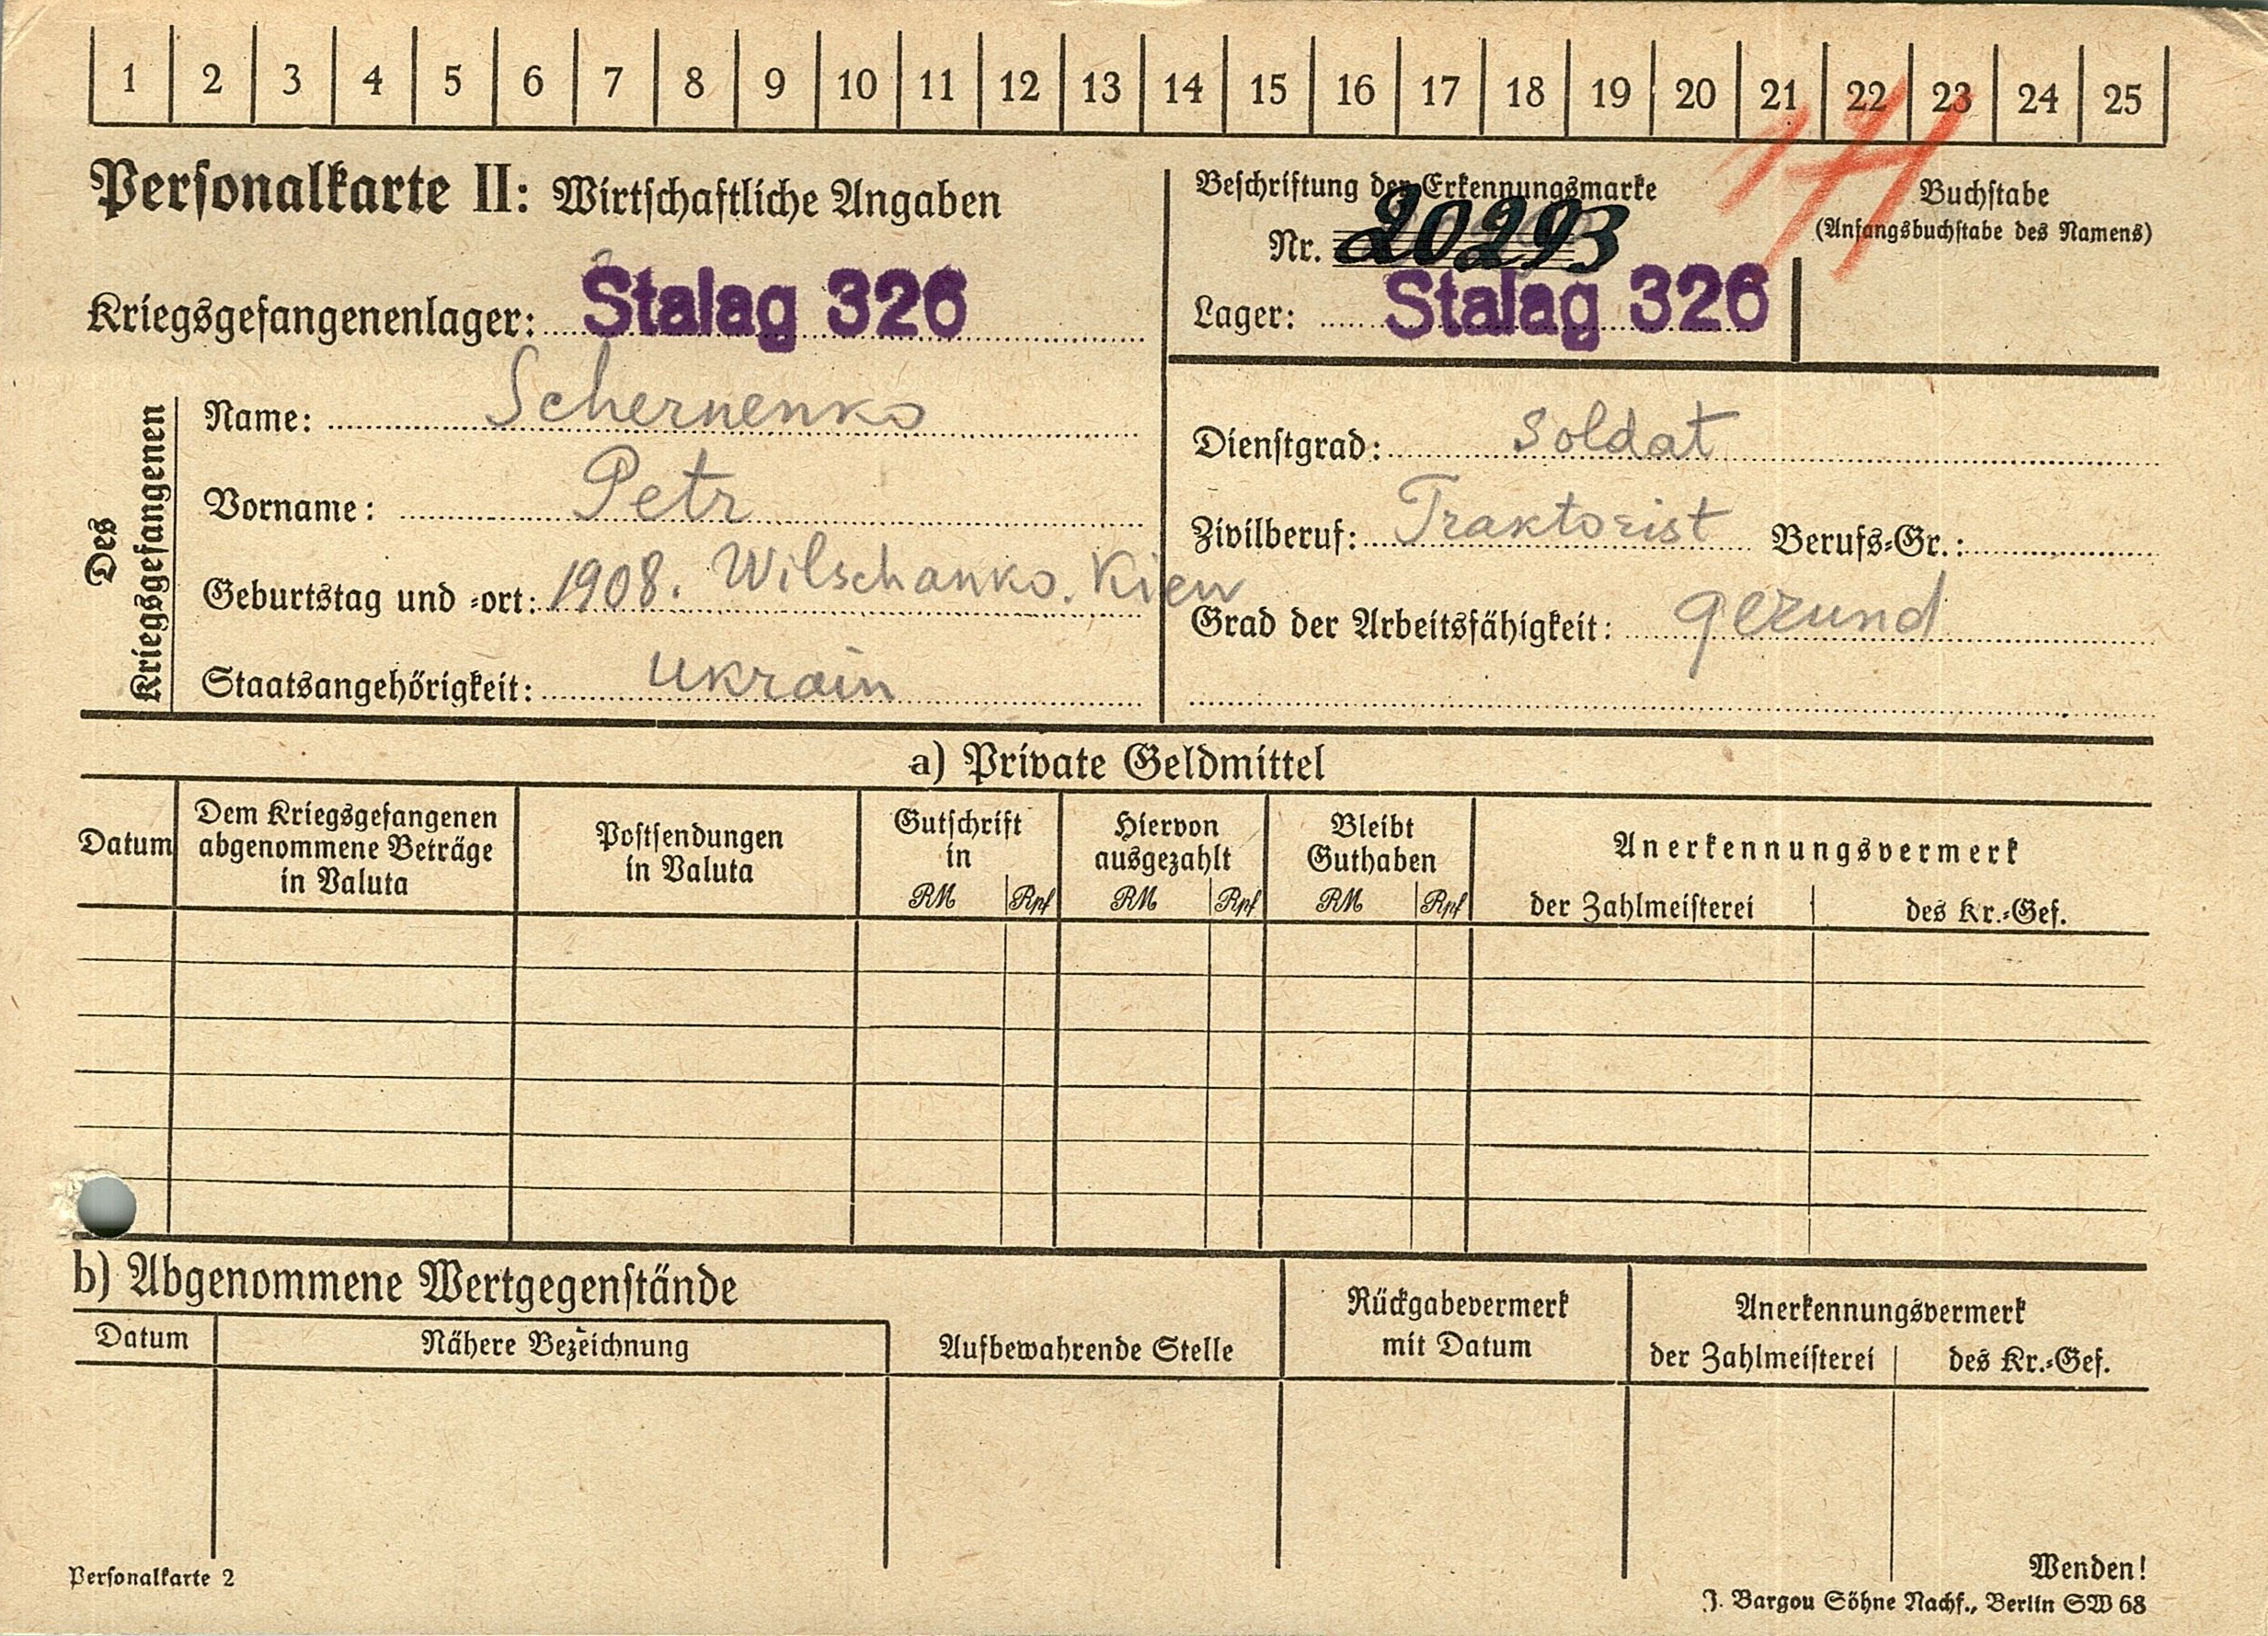 1 2 3 4 5 6 7 8 9 10 11 12 13 14 15 16 17 18 19 20 21 22 23 24 25
Personalkarte II: Wirtschaftliche Angaben
Kriegsgefangenenlager: Stalag 326
Beschriftung der Erkennungsmarke
Nr. 20293
Lager: Stalag 326
Buchstabe
(Anfangsbuchstabe des Namens)
Des Kriegsgefangenen
Name: Schernenko
Vorname: Petr
Geburtstag und -ort: 1908. Wilschanko. Kiew
Staatsangehörigkeit: Ukrain
Dienstgrad: Soldat
Zivilberuf: Traktorist Berufs-Gr.:
Grad der Arbeitsfähigkeit: gezund
a) Private Geldmittel
Datum
Dem Kriegsgefangenen
abgenommene Beträge
in Valuta
Postsendungen
in Valuta
Gutschrift
in
RM Rpf
Hiervon
ausgezahlt
RM Rpf
Bleibt
Guthaben
RM Rpf
Anerkennungsvermerk
der Zahlmeisterei des Kr.-Gef.
b) Abgenommene Wertgegenstände
Datum
Nähere Bezeichnung
Aufbewahrende Stelle
Rückgabevermerk
mit Datum
Anerkennungsvermerk
der Zahlmeisterei des Kr.-Gef.
Personalkarte 2
Wenden!
J. Bargou Söhne Nachf., Berlin SW 68